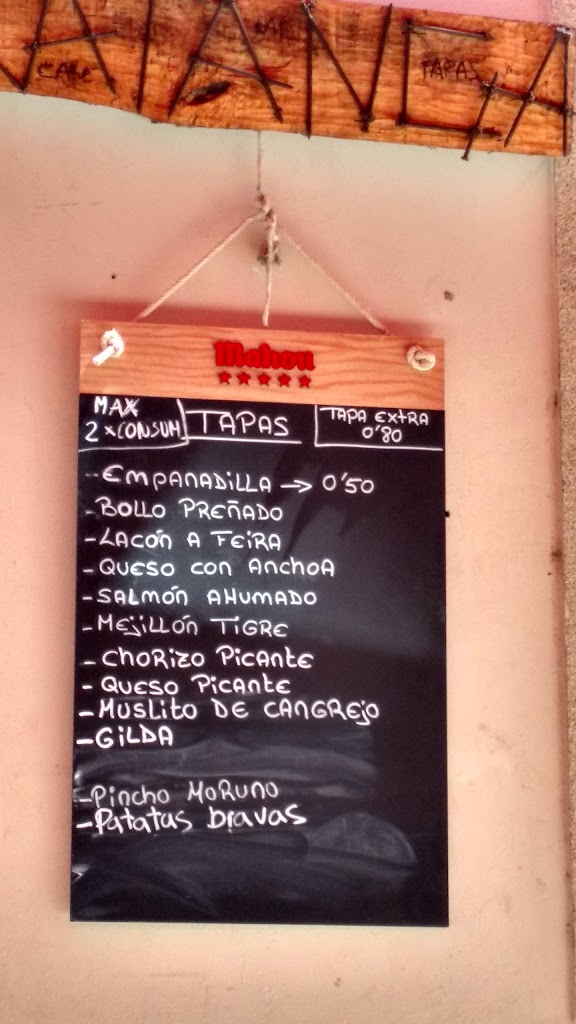 CAFE
TAPAS
Mahou
MAX
2 x CONSUM
TAPAS
TAPA EXTRA
0'80
- EMPANADILLA → 0'50
- BOLLO PREÑADO
- LACÓN A FEIRA
- QUESO CON ANCHOA
- SALMÓN AHUMADO
- MEJILLÓN TIGRE
- CHORIZO PICANTE
- QUESO PICANTE
- MUSLITO DE CANGREJO
- GILDA
- PINCHO MORUNO
- Patatas bravas